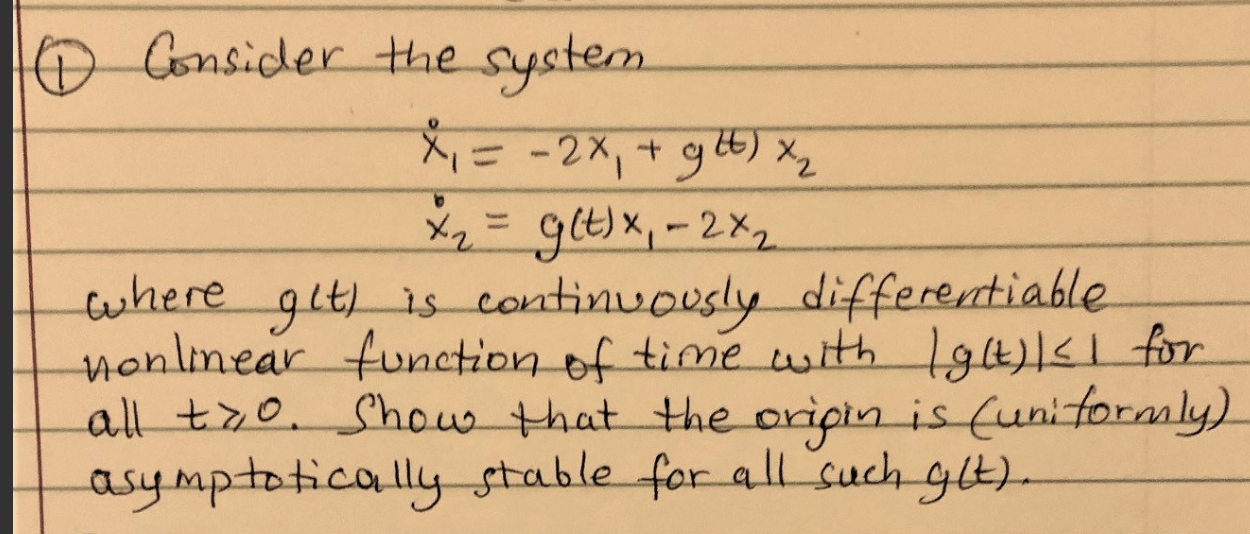 ① Consider the system
ẋ₁ = -2x₁ + g(t) x₂
ẋ₂ = g(t)x₁ - 2x₂
where g(t) is continuously differentiable
nonlinear function of time with |g(t)|≤1 for
all t≥0. Show that the origin is (uniformly)
asymptotically stable for all such g(t).